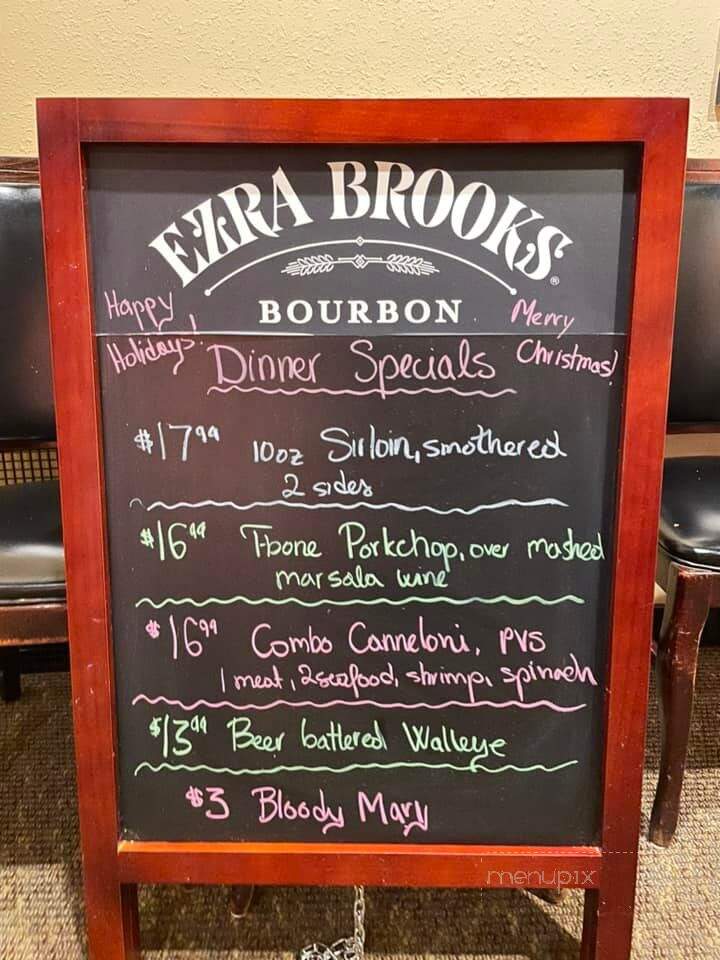 EZRA BROOKS®
BOURBON
Happy
Holidays!
Merry
Christmas!
Dinner Specials
$17.99 10oz Sirloin, smothered
2 sides
$16.99 T-bone Porkchop, over mashed
marsala wine
$16.99 Combo Canneloni, PVS
1 meat, 2 seafood, shrimp, spinach
$13.99 Beer battered Walleye
$3 Bloody Mary
menupix